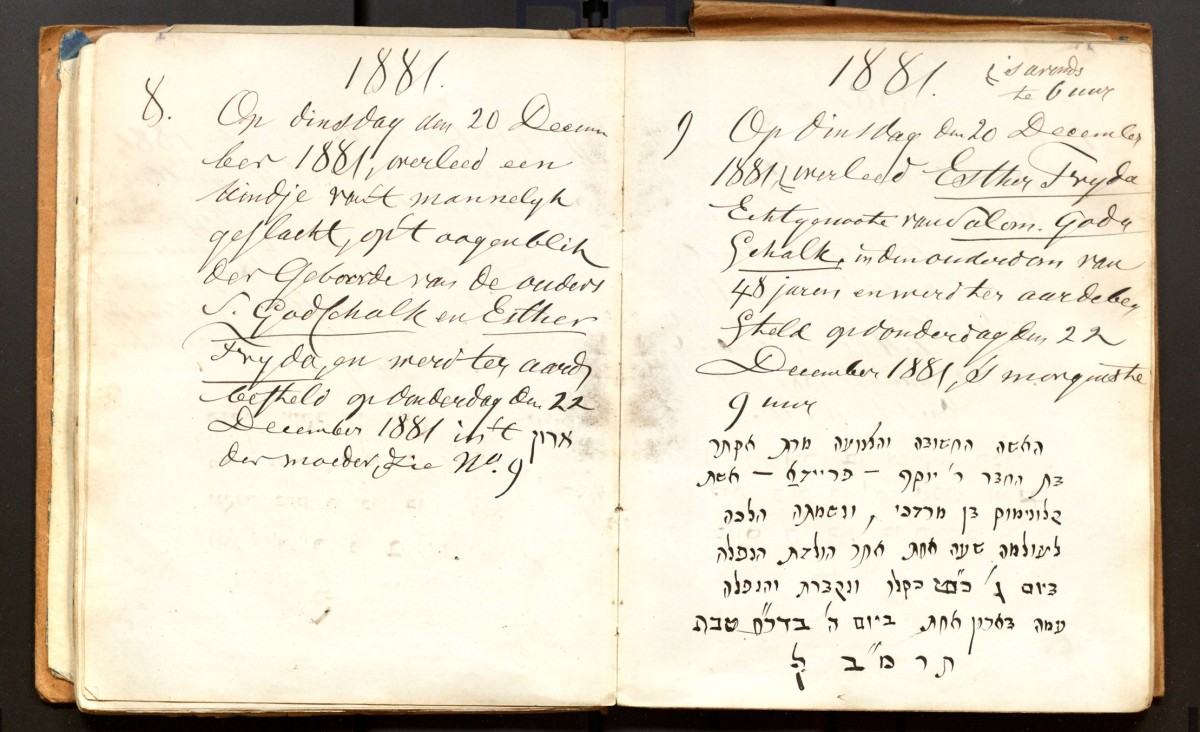 1881.
8. Op dinsdag den 20 Decem
ber 1881, overleed een
kindje van't mannelijk
geslacht, op't oogenblik
der Geboorde van de ouders
S. Godschalk en Esther
Fryda, en werd ter aard
besteld op donderdag den 22
December 1881 in't ארון
der moeder, Zie No. 9
1881.
's avonds
te 6 uur
9 Op dinsdag den 20 December
1881, overleed Esther Fryda
Echtgenoote van Salom. Gods
Schalk, in den ouderdom van
48 jaren en werd ter aarde be
steld op donderdag den 22
December 1881, 's morgens te
9 uur
האשה החשובה והצנועה מרת אסתר
בת החבר ר' יוסף – פריידא – אשת
קלונימוס בן מרדכי, ונשמתה הלכה
לעולמה שעה אחת אחר הולדת הנפלה
ביום ג' כסלו ונקברת והנפלה
עמה בארון אחת ביום ה' בדר"ח טבת
תרמ"ב ל